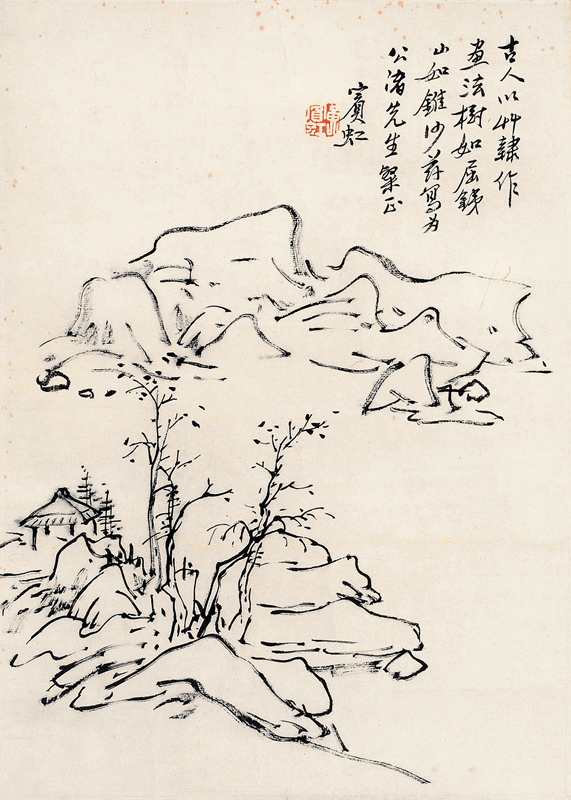 古人以艸隸作
畫法樹如屈鐵
山如錐沙茲寫为
公渚先生粲正
賓虹
黄賓虹